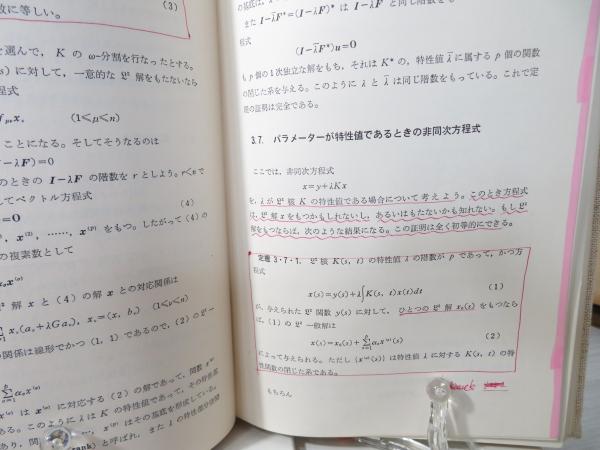 数に等しい。
(3)
を選んで，K の ω-分割を行なったとする。
s) に対して，一意的な 𝔏² 解をもたないなら
程式
(1≤μ≤n)
ことになる。そしてそうなるのは
−λF)=0
のときの I−λF の階数を r としよう。r<n で
してベクトル方程式
=0
(4)
, x⁽²⁾, ……, x⁽ᵖ⁾ をもつ。したがって (4) の
の複素数として
解 x と (4) の解 x との対応関係は
(1≤ν≤n)
関係は線形でかつ (1, 1) であるので，(2) の 𝔏²一
は x⁽ᵛ⁾ に対応する (2) の解であって，関数 x⁽ᵛ⁾
ある。このように λ は K の特性値であって，その特性基
また I−λ̄F*=(I−λF)* は I−λF と同じ階数をも
程式
(I−λ̄F*)u=0
も p 個の1次独立な解をもち，それは K* の，特性値 λ̄ に属する p 個の関数
の閉じた系を与える。このように λ と λ̄ は同じ階数をもっている。これで定
理の証明は完全である。
3.7. パラメーターが特性値であるときの非同次方程式
ここでは，非同次方程式
x=y+λKx
を，λ が 𝔏² 核 K の特性値である場合について考えよう。このとき方程式
は，𝔏² 解 x をもつかもしれないし，あるいはもたないかも知れない。もし 𝔏²
解をもつならば，次のような結果になる。この証明は全く初等的にできる。
定理 3・7・1. 𝔏² 核 K(s, t) の特性値 λ の階数が p であって，かつ方
程式
x(s)=y(s)+λ∫K(s, t)x(t)dt (1)
が，与えられた 𝔏² 関数 y(s) に対して，ひとつの 𝔏² 解 x₀(s) をもつなら
ば，(1) の 𝔏² 一般解は
x(s)=x₀(s)+∑αᵥx⁽ᵛ⁾(s) (2)
によって与えられる。ただし {x⁽ᵛ⁾(s)} は特性値 λ に対する K(s, t) の特
性関数の閉じた系である。
もちろん